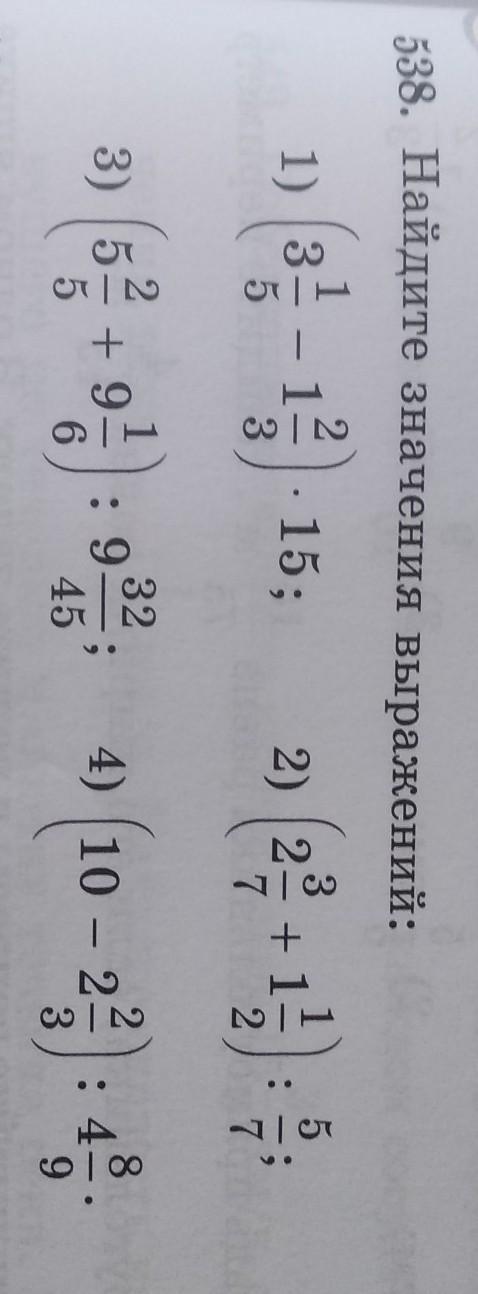 538. Найдите значения выражений:
1) (3 1/5 − 1 2/3) · 15; 2) (2 3/7 + 1 1/2) : 5/7;
3) (5 2/5 + 9 1/6) : 9 32/45; 4) (10 − 2 2/3) : 4 8/9.